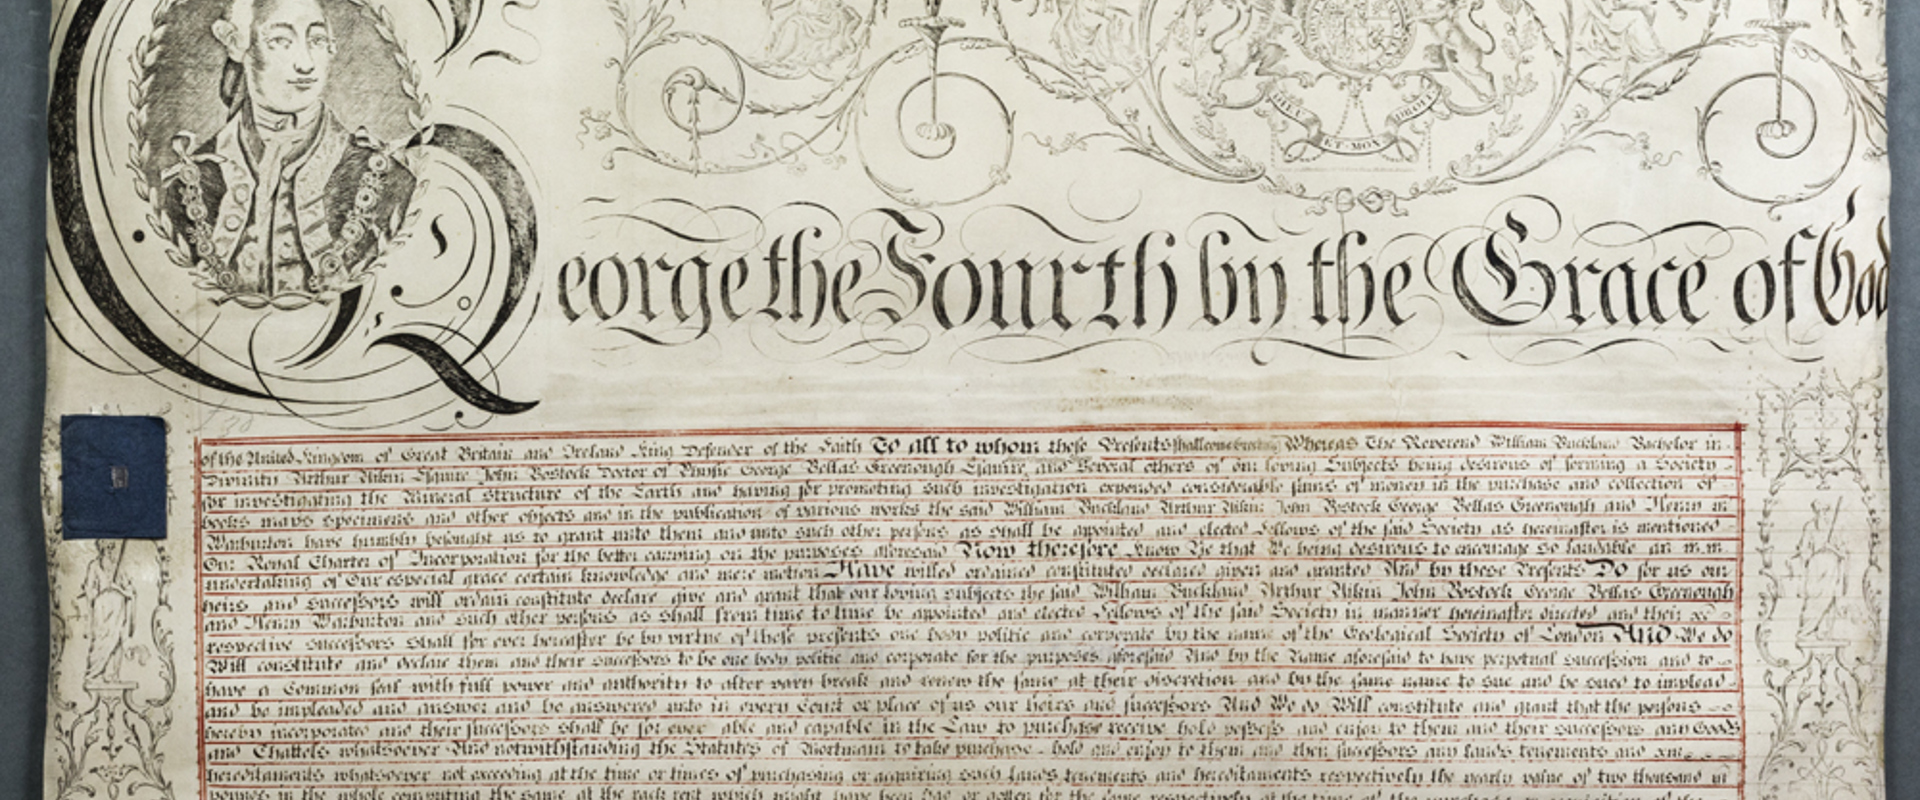 DIEU
ET·MON
DROIT
George the Fourth by the Grace of God
of the United Kingdom of Great Britain and Ireland King Defender of the Faith To all to whom these Presents shall come Greeting Whereas The Reverend William Buckland Bachelor in
Divinity Arthur Aikin Esquire John Bostock Doctor of Physic George Bellas Greenough Esquire, and Several others of our loving Subjects being desirous of forming a Society
for investigating the Mineral Structure of the Earth and having for promoting such investigation expended considerable sums of money in the purchase and collection of
books maps specimens and other objects and in the publication of various works the said William Buckland Arthur Aikin John Bostock George Bellas Greenough and Henry
Warburton have humbly besought us to grant unto them and unto such other persons as shall be appointed and elected Fellows of the said Society as hereinafter is mentioned
Our Royal Charter of Incorporation for the better carrying on the purposes aforesaid Now therefore Know Ye that We being desirous to encourage so laudable an
undertaking of Our especial grace certain knowledge and mere motion Have willed ordained constituted declared given and granted And by these Presents Do for us our
heirs and successors will ordain constitute declare give and grant that our loving subjects the said William Buckland Arthur Aikin John Bostock George Bellas Greenough
and Henry Warburton and such other persons as shall from time to time be appointed and elected Fellows of the said Society in manner hereinafter directed and their
respective successors shall for ever hereafter be by virtue of these presents one body politic and corporate by the name of the Geological Society of London And We do
Will constitute and declare them and their successors to be one body politic and corporate for the purposes aforesaid And by the Name aforesaid to have perpetual succession and to
have a Common seal with full power and authority to alter vary break and renew the same at their discretion and by the same name to Sue and be sued to implead
and be impleaded and answer and be answered unto in every Court or place of us our heirs and successors And We do Will constitute and grant that the persons
hereby incorporated and their successors shall be for ever able and capable in the Law to purchase receive hold possess and enjoy to them and their successors any Goods
and Chattels whatsoever And notwithstanding the Statutes of Mortmain to take purchase hold and enjoy to them and their successors any lands tenements and
hereditaments whatsoever not exceeding at the time or times of purchasing or acquiring such lands tenements and hereditaments respectively the yearly value of two thousand
pounds in the whole computing the same at the rack rent which might have been had or gotten for the same respectively at the time of the purchase or acquisition